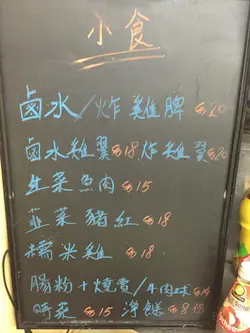 小食
鹵水/炸雞脾 $20
鹵水雞翼 $18 炸雞翼 $20
生菜魚肉 $15
韮菜豬紅 $18
糯米雞 $18
腸粉+燒賣/牛肉球
時菜 $15 淨餸 $8